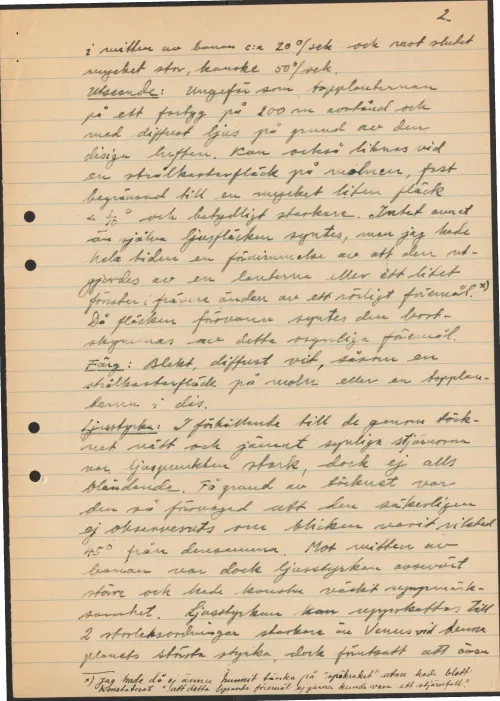 2
i mitten av banan c:a 20°/sek och mot slutet
mycket stor, kanske 50°/sek.
Utseende: Ungefär som topplanternan
på ett fartyg på 200 m avstånd och
med diffust ljus på grund av den
disiga luften. Kan också liknas vid
en strålkastarfläck på molnen, fast
begränsad till en mycket liten fläck
och betydligt starkare. Intet annat
än själva ljusfläcken syntes, men jag hade
hela tiden en förnimmelse av att den ut-
gjordes av en lanterna eller ett litet
fönster i främre änden av ett rörligt föremål. x)
Då fläcken försvann syntes den bort-
skymmas av detta osynliga föremål.
Färg: Blekt, diffust vit, såsom en
strålkastarfläck på moln eller en topplan-
terna i dis.
Ljusstyrka: I förhållande till de genom töck-
net nätt och jämnt synliga stjärnorna
var ljuspunkten stark, dock ej alls
bländande. På grund av töcknet var
den så försvagad att den säkerligen
ej observerats om blicken varit riktad
45° från densamma. Mot mitten av
banan var dock ljusstyrkan avsevärt
större och hade kanske väckt uppmärk-
samhet. Ljusstyrkan kan uppskattas till
2 storleksordningar starkare än Venus vid denna
planets största styrka, dock förutsatt att även
x) Jag hade då ej ännu hunnit tänka på "spökraket" utan hade blott
konstaterat "att detta lysande föremål ej gärna kunde vara ett stjärnfall."